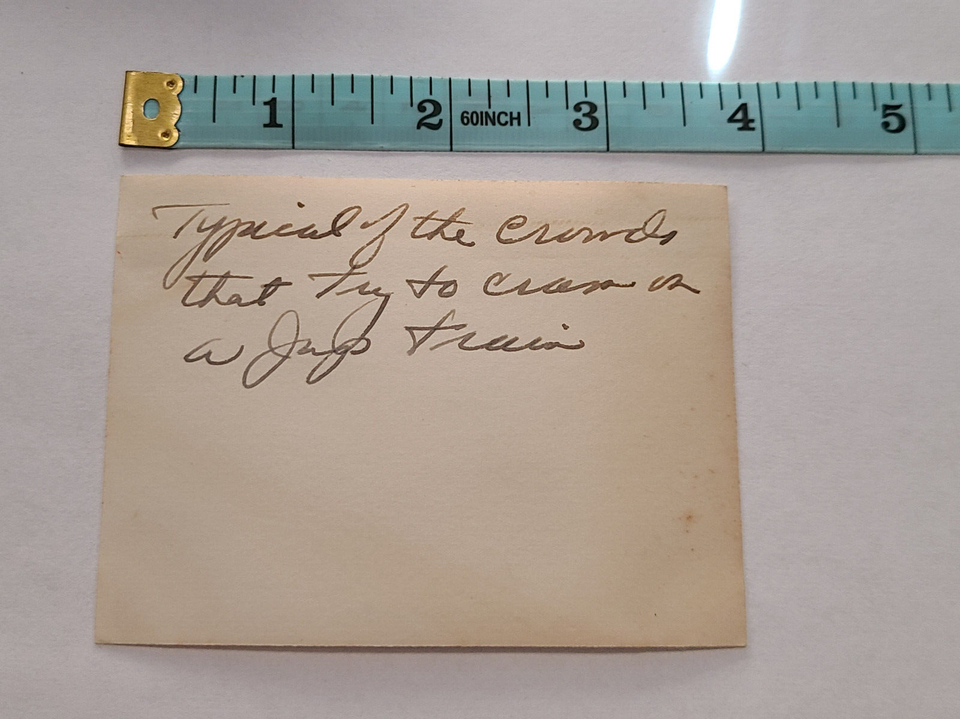 1 2 60INCH 3 4 5
Typical of the crowds
that Try to cram on
a Jap Train